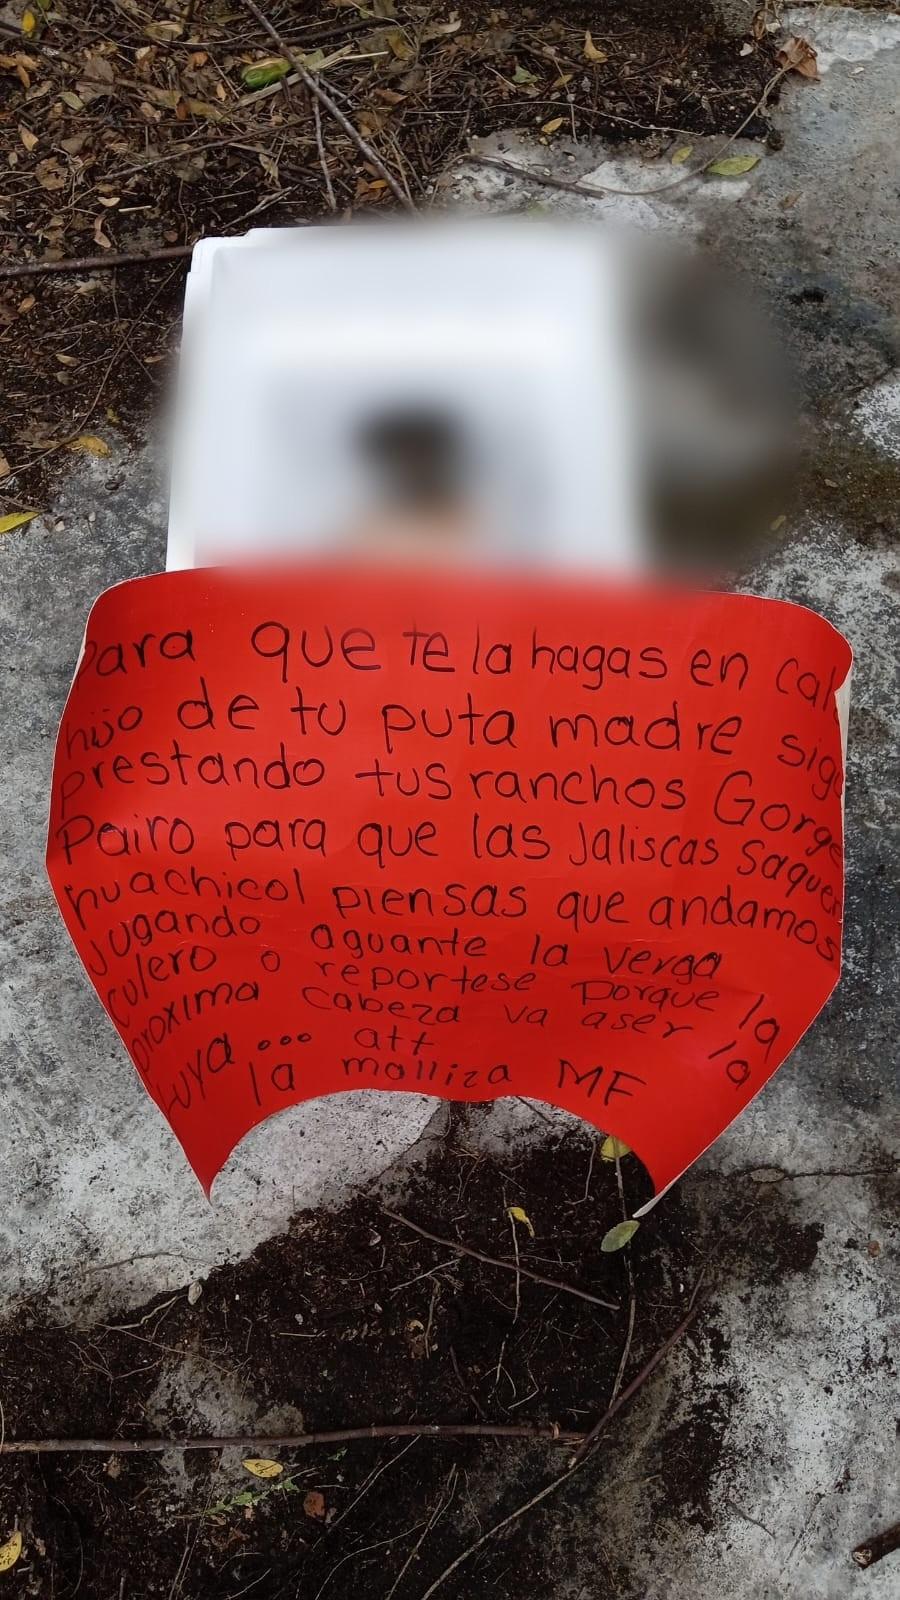 Para que te la hagas en cal
hijo de tu puta madre sigu
prestando tus ranchos Gorge
Pairo para que las Jaliscas saquen
huachicol piensas que andamos
jugando aguante la verga
culero o reportese porque la
proxima cabeza va aser la
tuya... att
la malliza MF